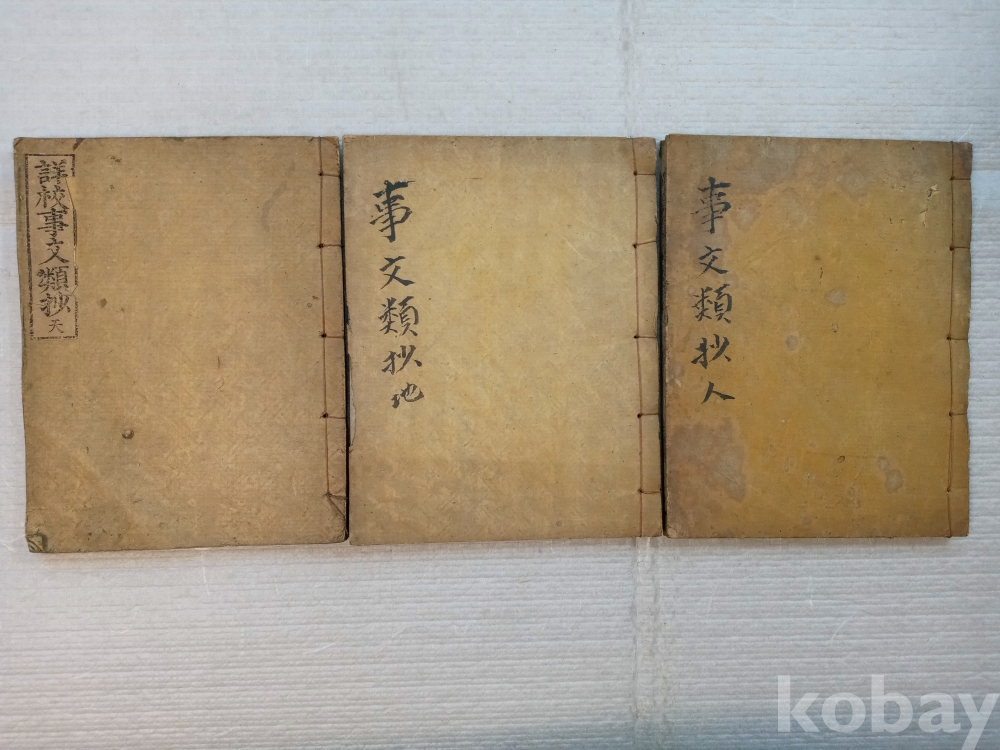 詳校事文類抄 天
事文類抄 地
事文類抄 人
kobay